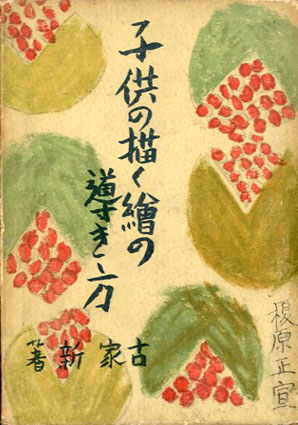 子供の描く繪の
導き方
古家新著
榎原正宣